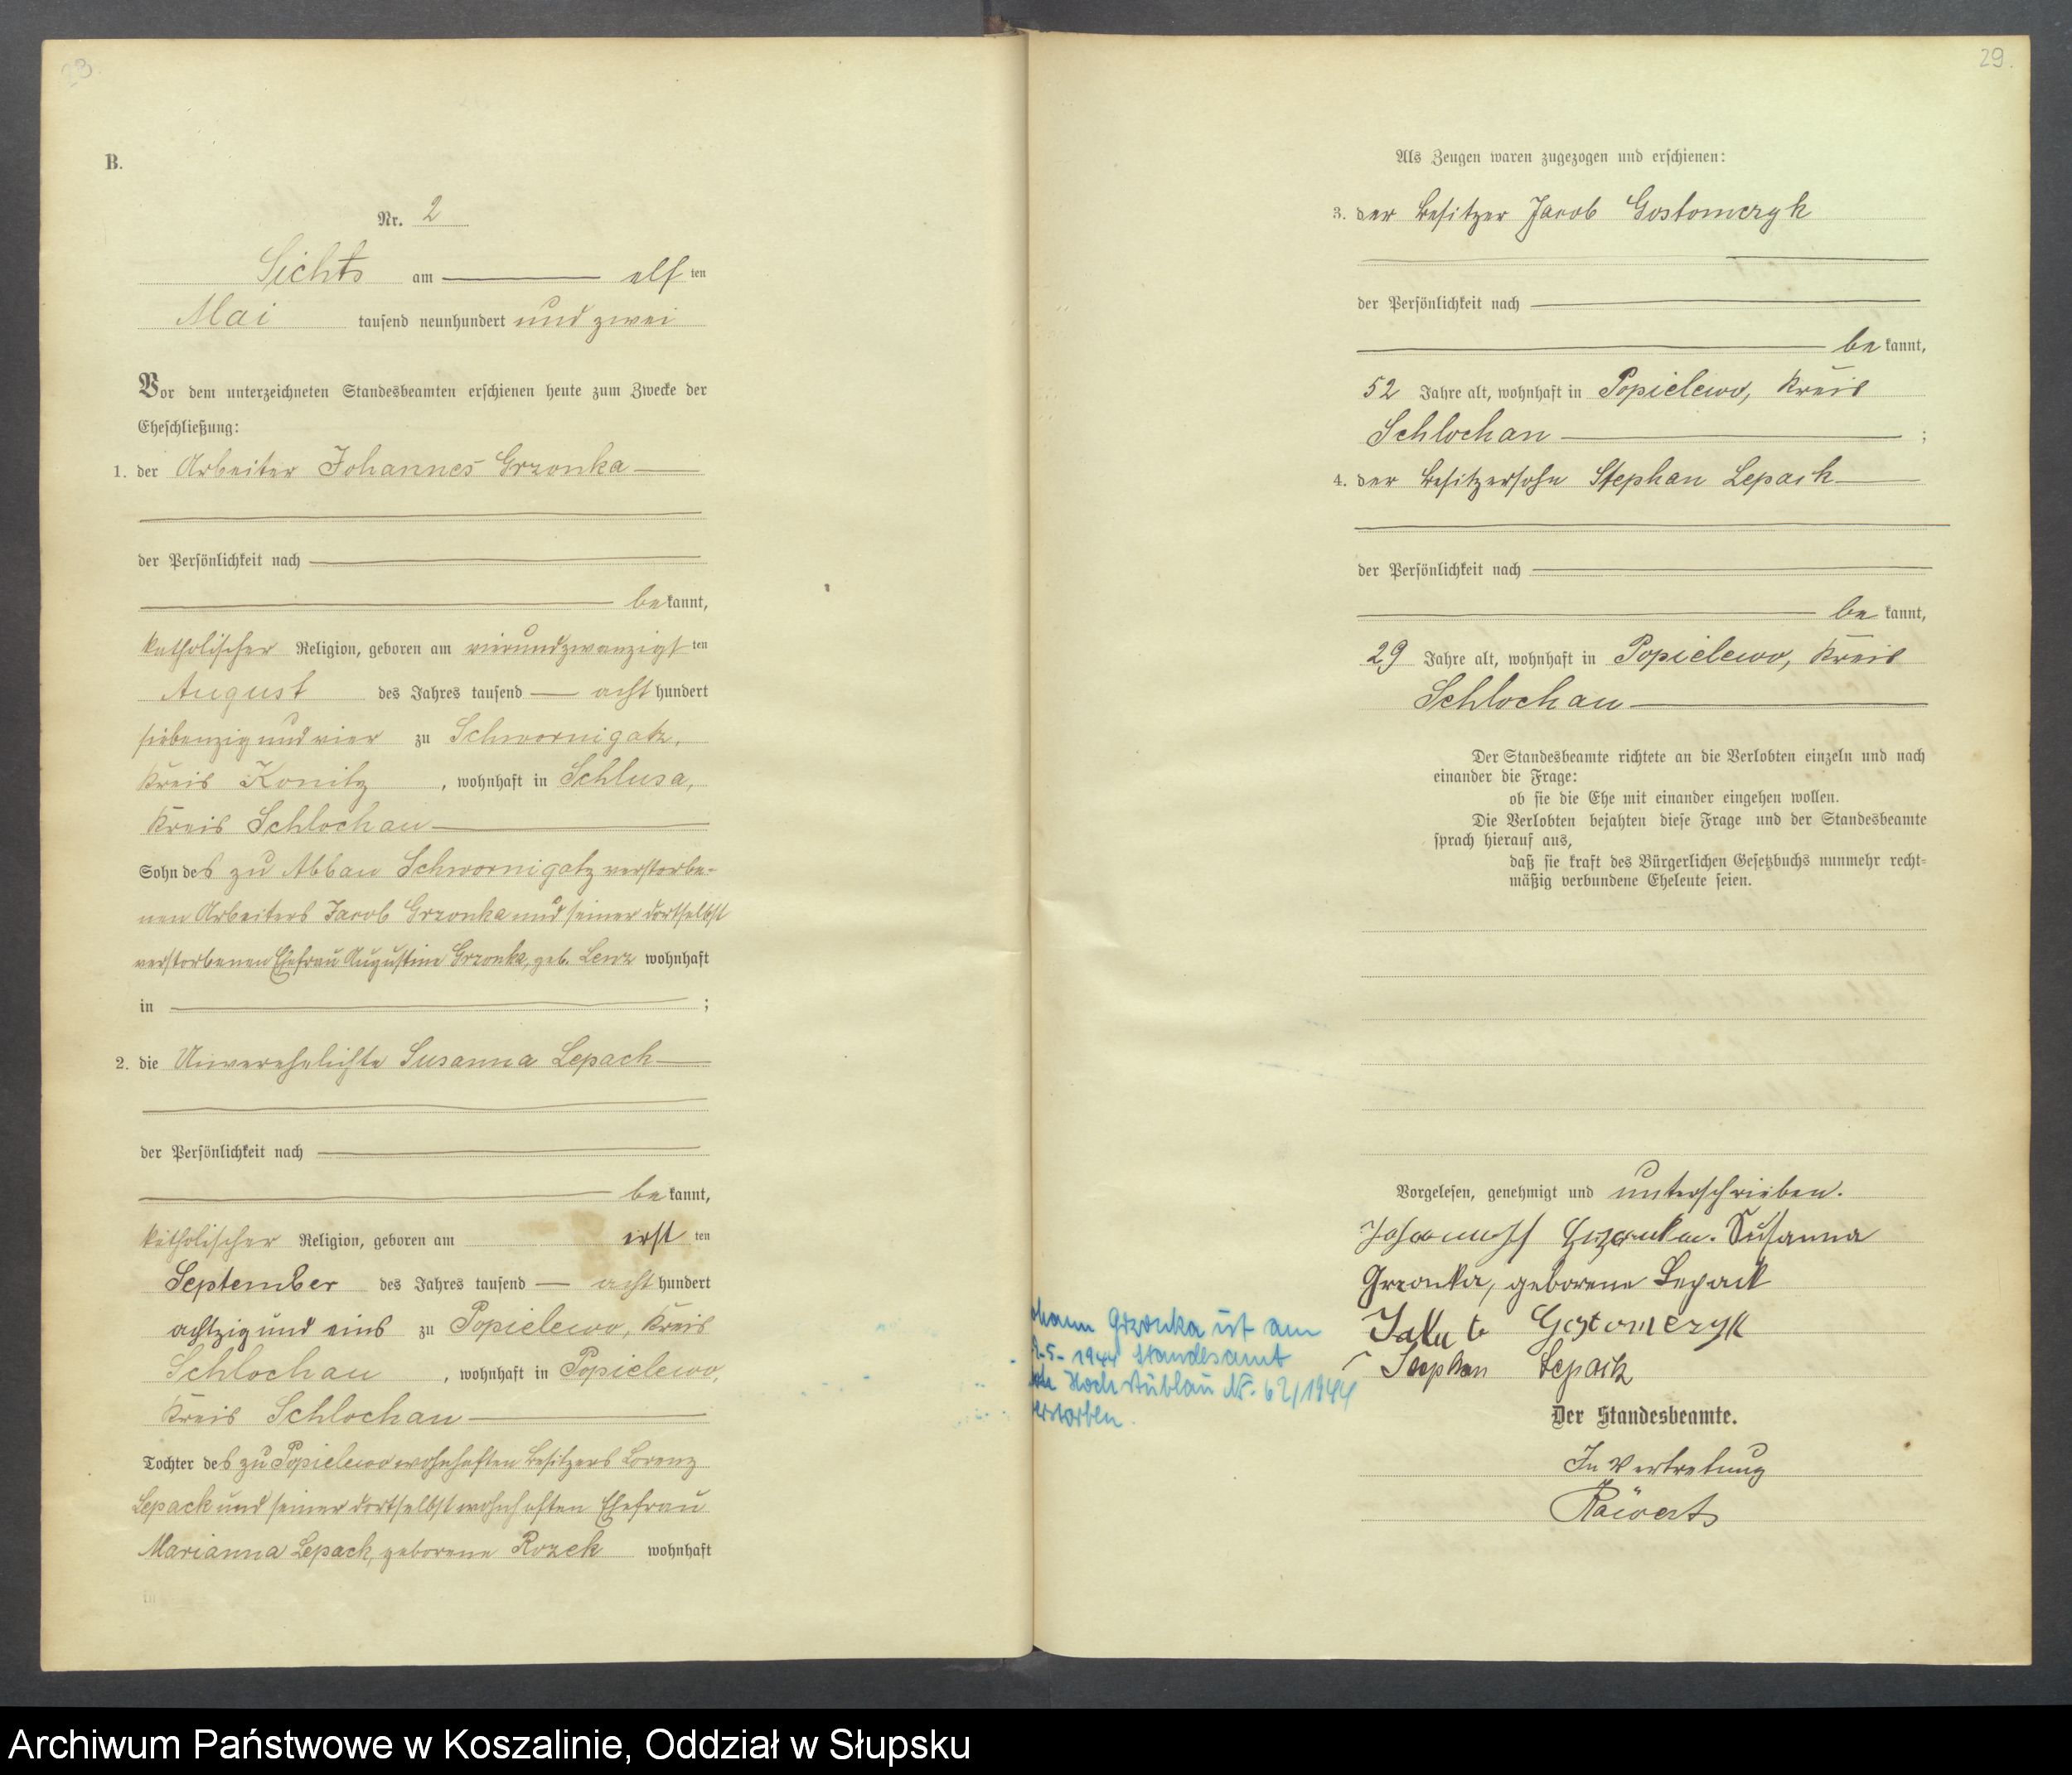 B.
Nr. 2
Lichts am elf ten
Mai tausend neunhundert und zwei
Vor dem unterzeichneten Standesbeamten erschienen heute zum Zwecke der
Eheschließung:
1. der Arbeiter Johannes Grzonka
der Persönlichkeit nach
be kannt,
katholischer Religion, geboren am vierundzwanzigst ten
August des Jahres tausend acht hundert
siebenzig und vier zu Schwornigatz,
Kreis Konitz, wohnhaft in Schlusa,
Kreis Schlochau
Sohn des zu Abbau Schwornigatz verstorbe-
nen Arbeiters Jacob Grzonka und seiner dortselbst
verstorbenen Ehefrau Augustine Grzonka, geb. wohnhaft
in ;
2. die Unverehelichte Susanna Lepach
der Persönlichkeit nach
be kannt,
katholischer Religion, geboren am erst ten
September des Jahres tausend acht hundert
achtzig und eins zu Popielewo, Kreis
Schlochau, wohnhaft in Popielewo,
Kreis Schlochau
Tochter des zu Popielewo wohnhaften Besitzers Lorenz
Lepack und seiner dortselbst wohnhaften Ehefrau
Marianna Lepack, geborene Rozek wohnhaft
in
29.
Als Zeugen waren zugezogen und erschienen:
3. der Besitzer Jacob Gostomczyk
der Persönlichkeit nach
be kannt,
52 Jahre alt, wohnhaft in Popielewo, Kreis
Schlochau ;
4. der Besitzersohn Stephan Lepack
der Persönlichkeit nach
be kannt,
29 Jahre alt, wohnhaft in Popielewo, Kreis
Schlochau
Der Standesbeamte richtete an die Verlobten einzeln und nach
einander die Frage:
ob sie die Ehe mit einander eingehen wollen.
Die Verlobten bejahten diese Frage und der Standesbeamte
sprach hierauf aus,
daß sie kraft des Bürgerlichen Gesetzbuchs nunmehr recht-
mäßig verbundene Eheleute seien.
Vorgelesen, genehmigt und unterschrieben.
Johannes Grzonka. Susanna
Grzonka, geborene Lepack
Jakub Gostomczyk
Stephan Lepack
ohann Grzonka ist am
5-1944 Standesamt
Hochstüblau Nr. 62/1944
erstorben.
Der Standesbeamte.
In Vertretung
Archiwum Państwowe w Koszalinie, Oddział w Słupsku